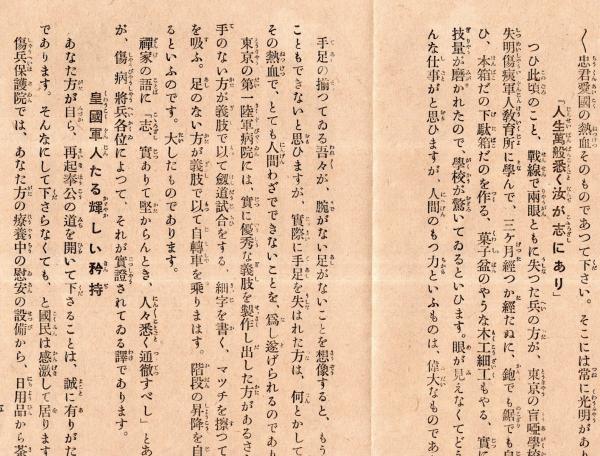 〱忠君愛國の熱血そのものであつて下さい。そこには常に光明があり
『人生萬般悉く汝が志にあり』
つひ此頃のこと、戰線で兩眼ともに失つた兵の方が、東京の盲啞學校
失明傷痍軍人敎育所に學んで、三ケ月經つか經たぬに、鉋でも鋸でも自
ひ、本箱だの下駄箱だのを作る、菓子盆のやうな木工細工もやる、實に
技量が磨かれたので、學校が驚いてゐるといひます。眼が見えなくてどう
んな仕事がと思ひますが、人間のもつ力といふものは、偉大なものであ
手足の揃つてゐる吾々が、腕がない足がないことを想像すると、もう
こともできないと思ひますが、實際に手足を失はれた方は、何とかして
その熱血で、とても人間わざでできないことを、爲し遂げられるのであり
東京の第一陸軍病院には、實に優秀な義肢を製作し出した方があるさ
手のない方が義肢で以て劔道試合をする、細字を書く、マツチを擦つて
を吸ふ。足のない方が義肢で以て自轉車を乘りまはす。階段の昇降を自
るといふのです。大したものであります。
禪家の語に『志、實ありて堅からんとき、人々悉く通徹すべし』とあ
が、傷病將兵各位によつて、それが實證されてゐる譯であります。
皇國軍人たる輝しい矜持
あなた方が自ら、再起奉公の道を開いて下さることは、誠に有りがた
であります。そんなにして下さらなくても、と國民は感激して居ります
傷兵保護院では、あなた方の療養中の慰安の設備から、日用品から茶